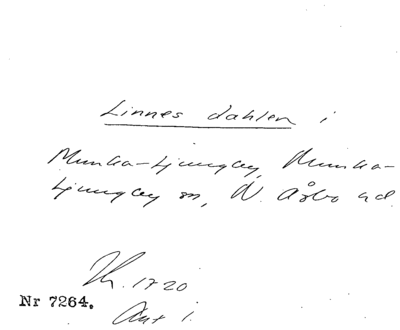 Linnés dahlen i
Munka-Ljungby, Munka-
Ljungby sn, N. Åsbo hd
Nr 7264.